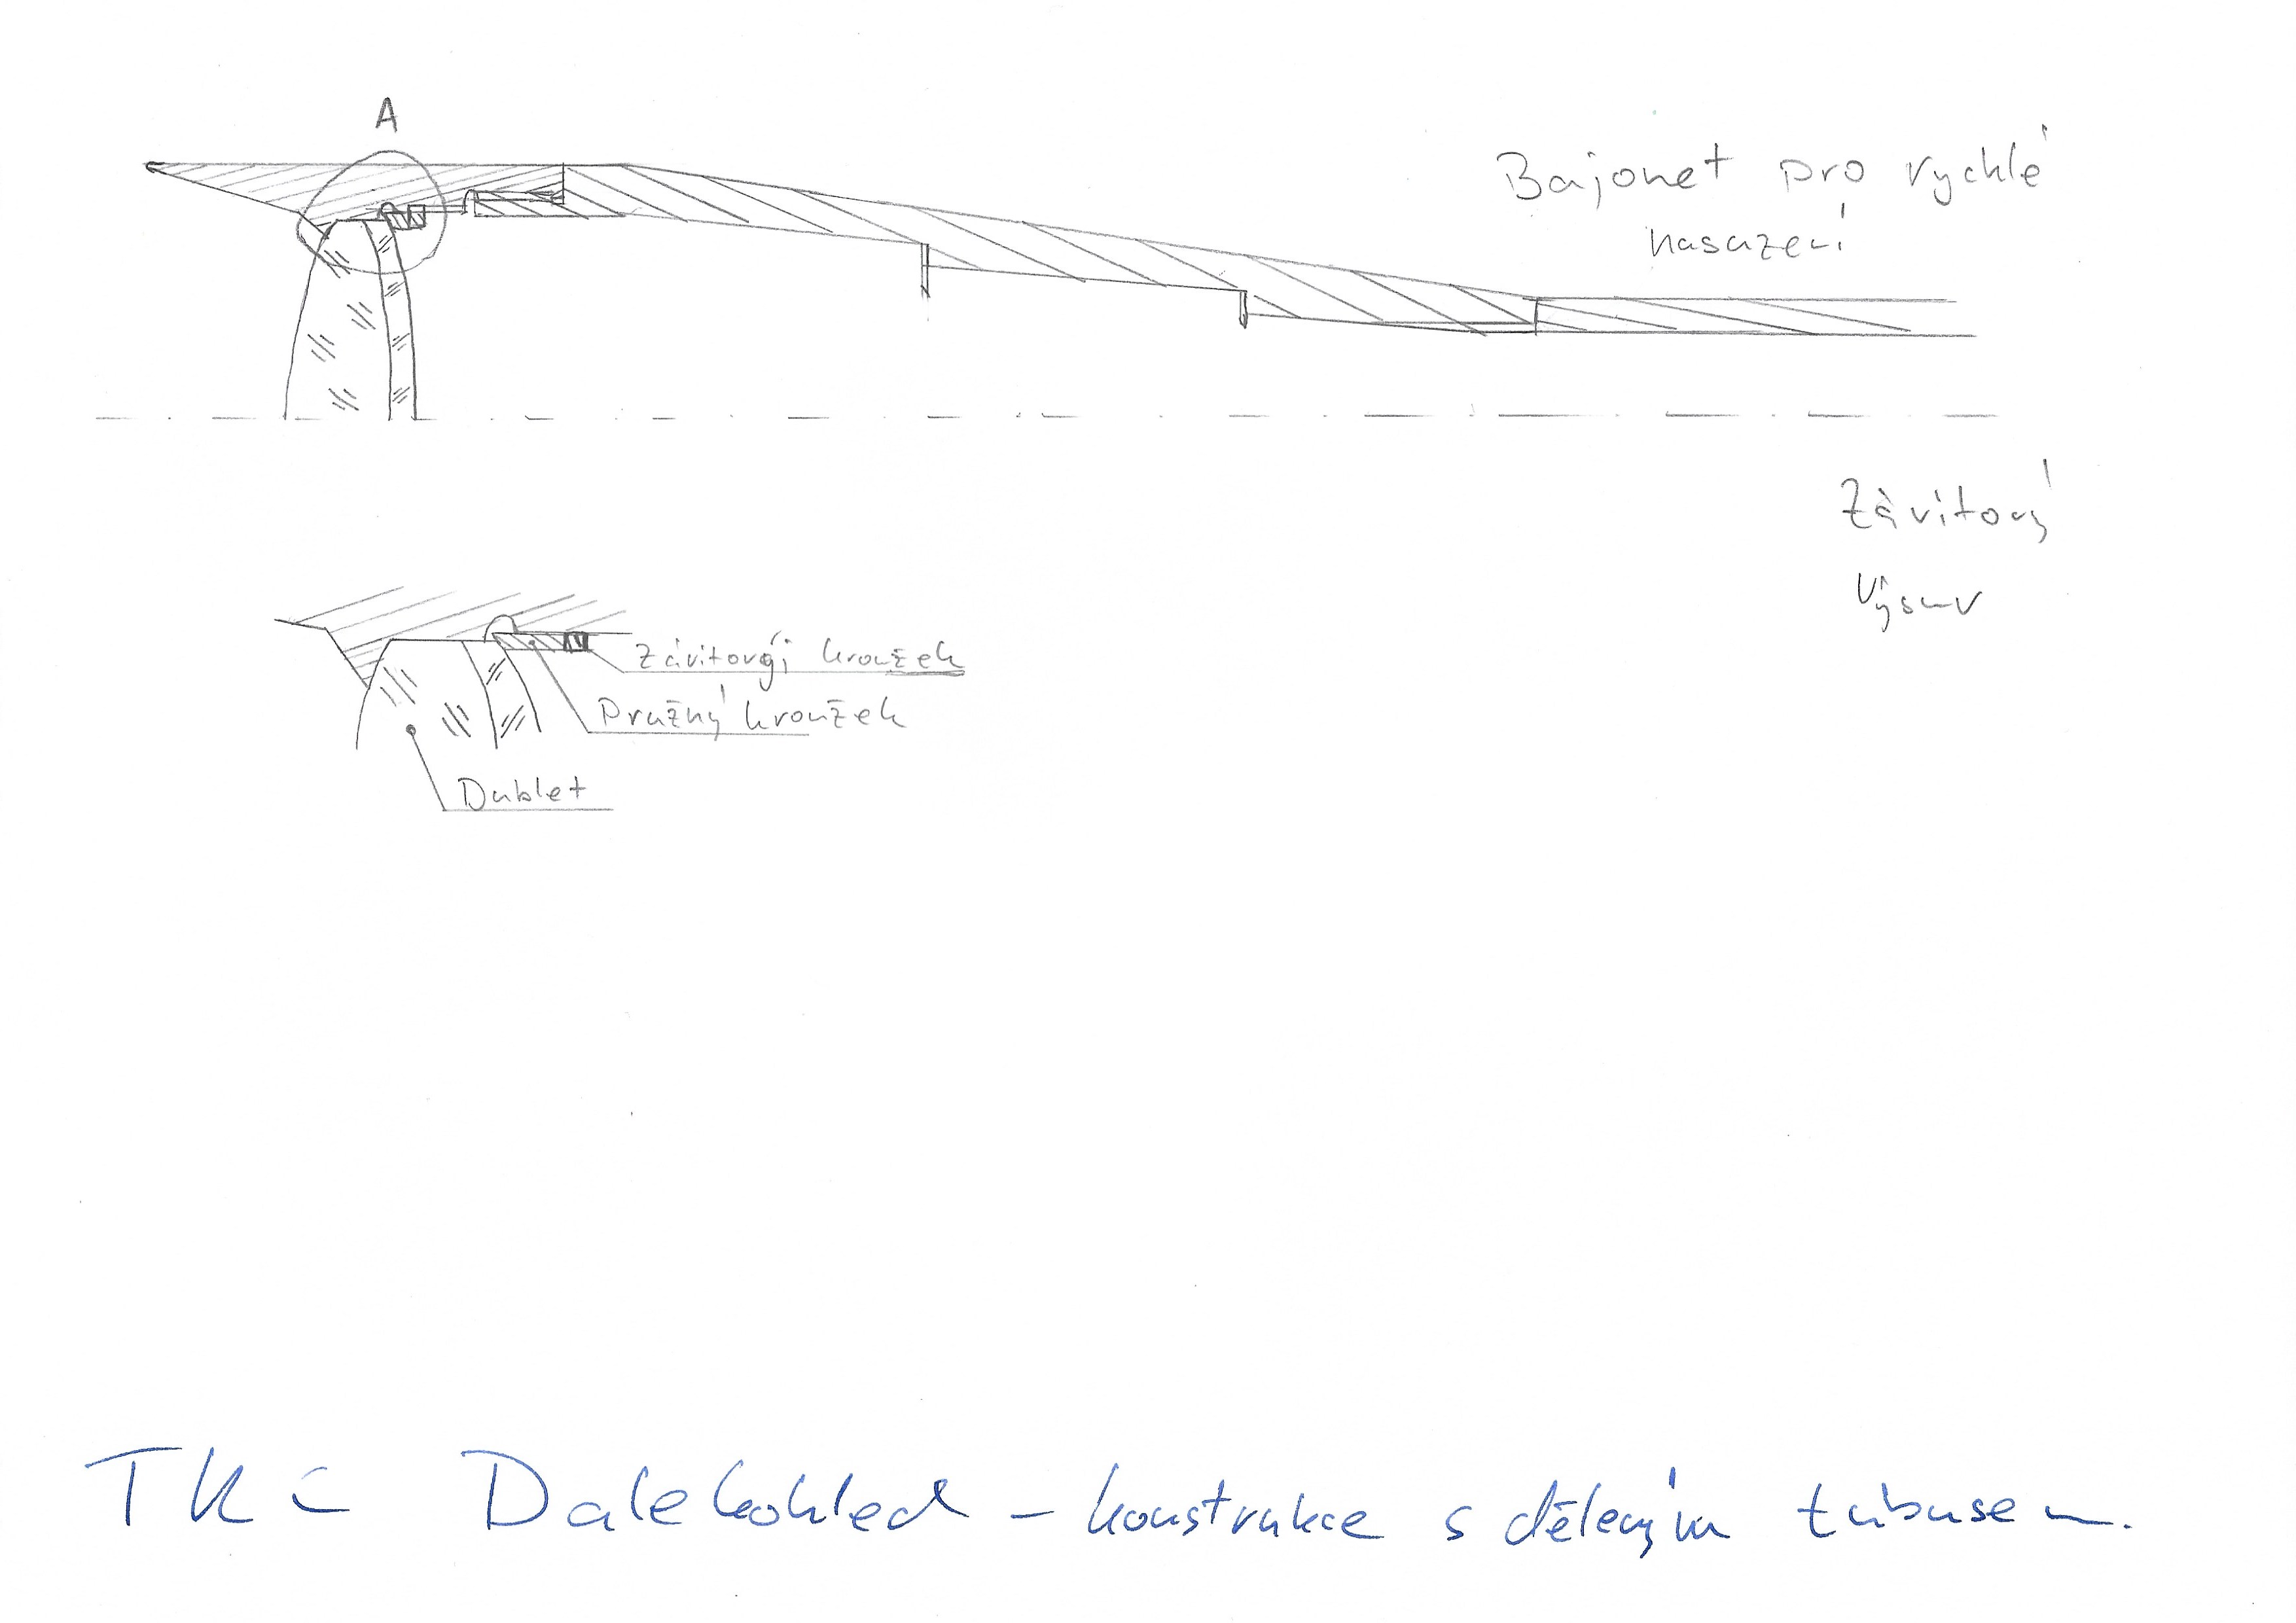 A
Bajonet pro rychlé
nasazení
Závitový
Výsuv
Závitový kroužek
Pružný kroužek
Dublet
Dalekohled - konstrukce s děleným tubusem.